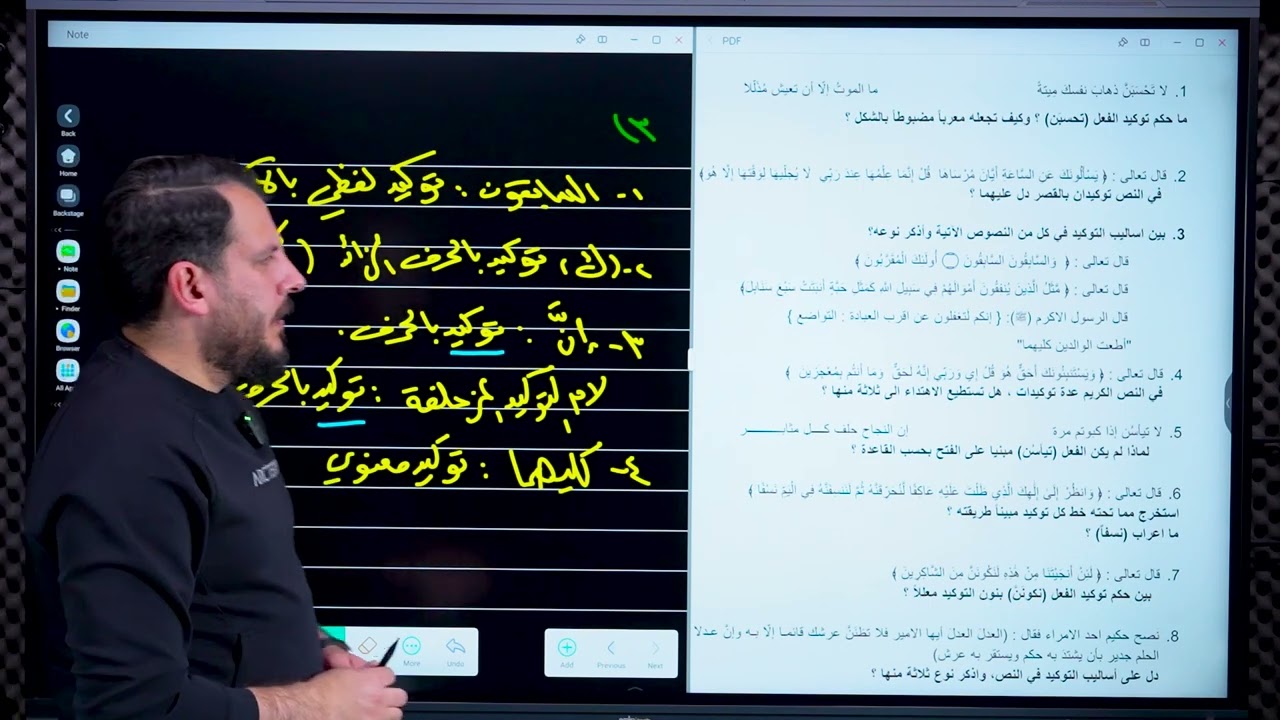 Note
Back
Home
Backstage
Note
Finder
Browser
All
٣)
١- السابقون : توكيد لفظي
٢- (ك) توكيد بالحرف الزائد
٣- إنَّ : توكيد بالحرف.
لام التوكيد المزحلقة : توكيد
٤- كليهما : توكيد معنوي
More
Undo
Add
Previous
Next
PDF
1. لا تَحْسَبَنَّ ذهابَ نفسك مِيتةً ما الموتُ إلّا أن تعيش مُذَلّلا
ما حكم توكيد الفعل (تحسبن) ؟ وكيف تجعله معرباً مضبوطاً بالشكل ؟
2. قال تعالى : { يَسْأَلُونَكَ عَنِ السَّاعَةِ أَيَّانَ مُرْسَاهَا قُلْ إِنَّمَا عِلْمُهَا عِندَ رَبِّي لَا يُجَلِّيهَا لِوَقْتِهَا إِلَّا هُوَ}
في النص توكيدان بالقصر دل عليهما ؟
3. بين اساليب التوكيد في كل من النصوص الاتية وأذكر نوعه؟
قال تعالى : { وَالسَّابِقُونَ السَّابِقُونَ أُولَئِكَ الْمُقَرَّبُونَ }
قال تعالى : { مَّثَلُ الَّذِينَ يُنفِقُونَ أَمْوَالَهُمْ فِي سَبِيلِ اللَّهِ كَمَثَلِ حَبَّةٍ أَنبَتَتْ سَبْعَ سَنَابِلَ}
قال الرسول الاكرم (ﷺ): { إنكم لتغفلون عن اقرب العبادة : التواضع }
"أطعت الوالدين كليهما"
4. قال تعالى : { وَيَسْتَنبِئُونَكَ أَحَقٌّ هُوَ قُلْ إِي وَرَبِّي إِنَّهُ لَحَقٌّ وَمَا أَنتُم بِمُعْجِزِينَ }
في النص الكريم عدة توكيدات ، هل تستطيع الاهتداء الى ثلاثة منها ؟
5. لا تيأسْن إذا كبوتم مرة إن النجاح حلف كـــل مثابــــــــر
لماذا لم يكن الفعل (تيأسُن) مبنيا على الفتح بحسب القاعدة ؟
6. قال تعالى : { وَانظُرْ إِلَىٰ إِلَٰهِكَ الَّذِي ظَلْتَ عَلَيْهِ عَاكِفًا لَّنُحَرِّقَنَّهُ ثُمَّ لَنَنسِفَنَّهُ فِي الْيَمِّ نَسْفًا }
استخرج مما تحته خط كل توكيد مبيناً طريقته ؟
ما اعراب (نسفاً) ؟
7. قال تعالى : { لَئِنْ أَنجَيْتَنَا مِنْ هَٰذِهِ لَنَكُونَنَّ مِنَ الشَّاكِرِينَ }
بين حكم توكيد الفعل (نكوننَّ) بنون التوكيد معللاً ؟
8. نصح حكيم احد الامراء فقال : (العدلَ العدلَ أيها الامير فلا تظنَنَّ عرشك قائمـا إلّا بـه وإنَّ عـدلا
الحلم جدير بأن يشتدَ به حكم ويستقر به عرش)
دل على أساليب التوكيد في النص، واذكر نوع ثلاثة منها ؟